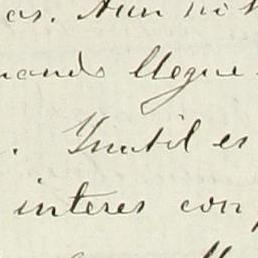 as. Aun no s
uando llegue
. Inutil es
interes con